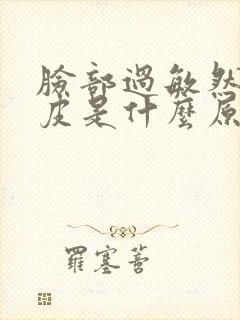 臉部過敏然
皮是什麼原
羅塞菩